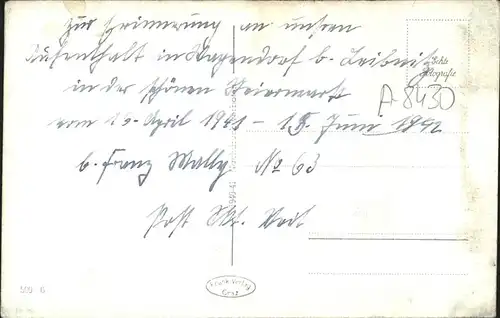 Zur Erinnerung an unsern
Aufenthalt in Wagendorf b. Leibnitz
in der schönen Steiermark
vom 16. April 1941 - 15. Juni 1942
b. Franz Wally No 63
Post St. Veit
Echte
Fotografie
A-8430
1940-41
Frank-Verlag
Graz
559 G